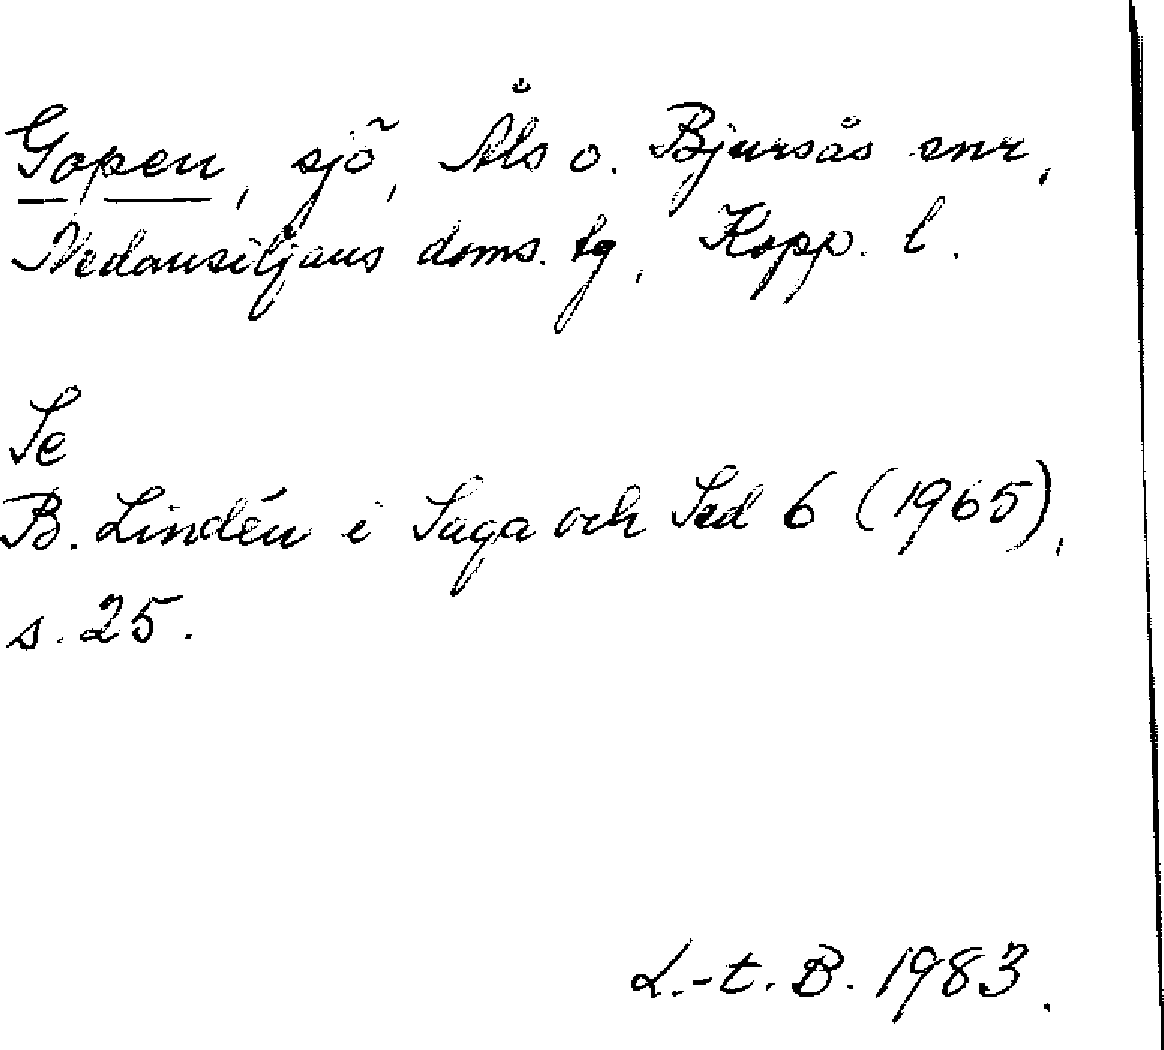 Gopen, sjö, Åls o. Bjursås snr,
Nedansiljans doms. tg, Kopp. l.
Se
B. Lindén i Saga och Sed 6 (1965),
s. 25.
L.-t. B. 1983.